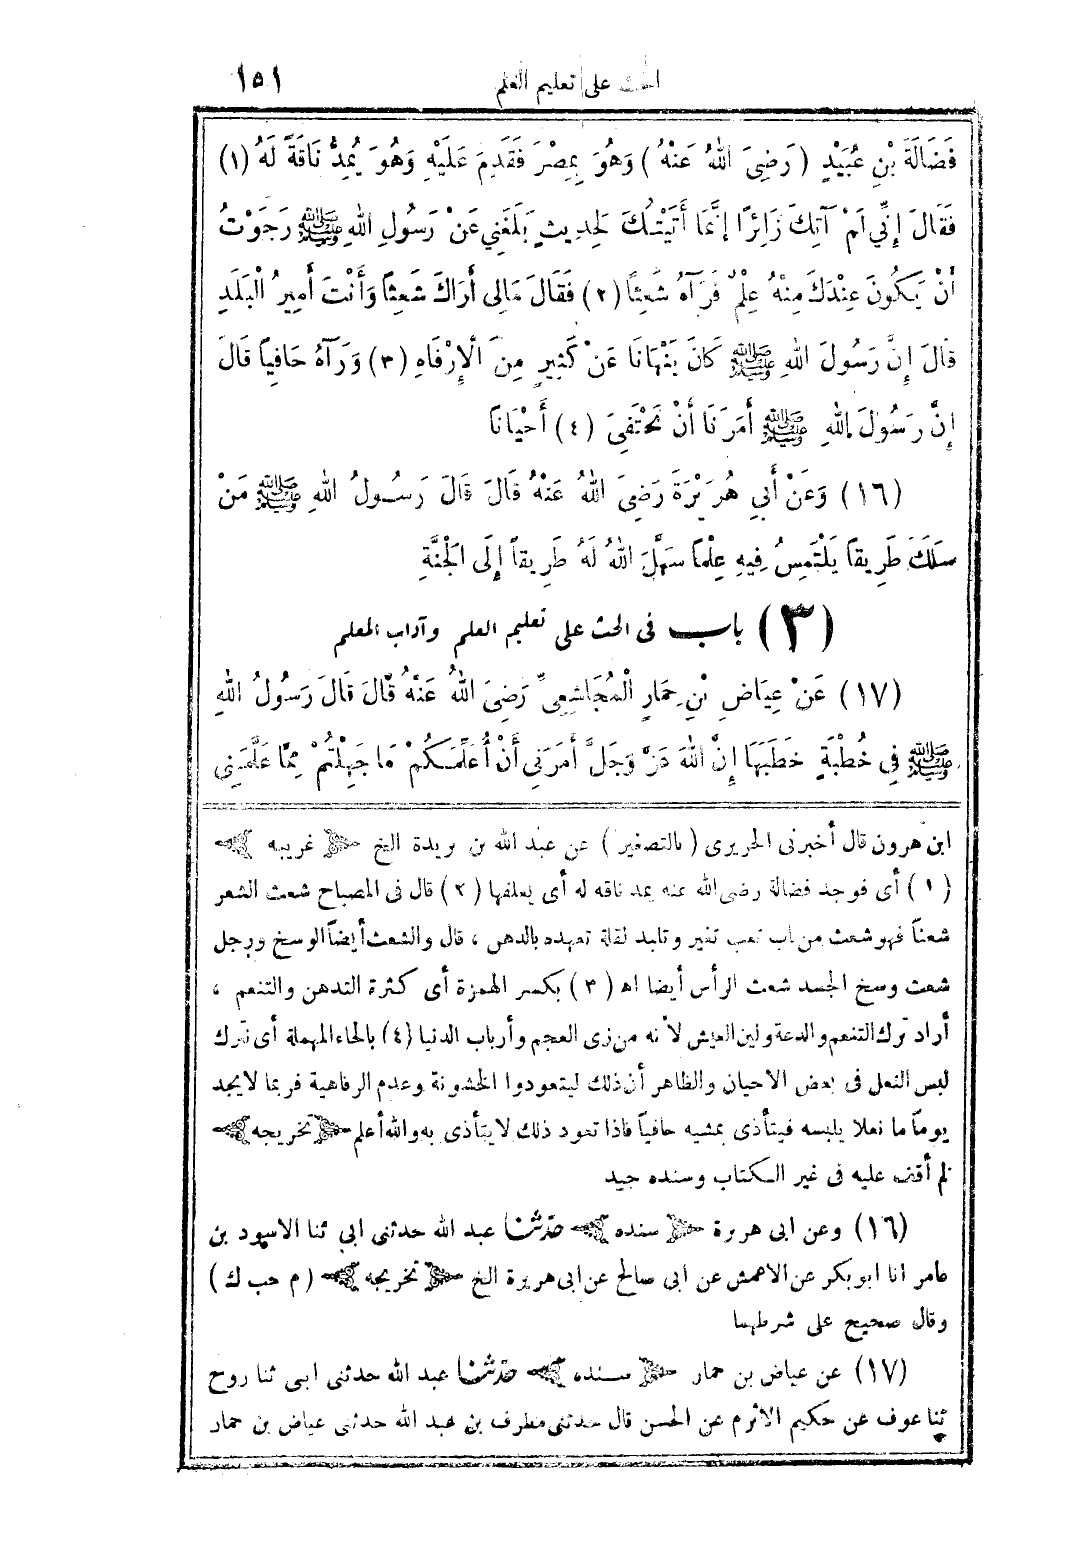 الحث على تعليم العلم ١٥١
فَضَالَةَ بْنِ عُبَيْدٍ (رَضِيَ اللهُ عَنْهُ) وَهُوَ بِمِصْرَ فَقَدِمَ عَلَيْهِ وَهُوَ يُمِدُّ نَاقَةً لَهُ (١)
فَقَالَ إِنِّي لَمْ آتِكَ زَائِرًا إِنَّمَا أَتَيْتُكَ لِحَدِيثٍ بَلَغَنِي عَنْ رَسُولِ اللهِ ﷺ رَجَوْتُ
أَنْ يَكُونَ عِنْدَكَ مِنْهُ عِلْمٌ فَرَآهُ شَعِثًا (٢) فَقَالَ مَالِي أَرَاكَ شَعِثًا وَأَنْتَ أَمِيرُ الْبَلَدِ
قَالَ إِنَّ رَسُولَ اللهِ ﷺ كَانَ يَنْهَانَا عَنْ كَثِيرٍ مِنَ الْإِرْفَاهِ (٣) وَرَآهُ حَافِياً قَالَ
إِنَّ رَسُولَ اللهِ ﷺ أَمَرَنَا أَنْ نَحْتَفِيَ (٤) أَحْيَانًا
(١٦) وَعَنْ أَبِي هُرَيْرَةَ رَضِيَ اللهُ عَنْهُ قَالَ قَالَ رَسُولُ اللهِ ﷺ مَنْ
سَلَكَ طَرِيقاً يَلْتَمِسُ فِيهِ عِلْماً سَهَّلَ اللهُ لَهُ طَرِيقاً إِلَى الْجَنَّةِ
(٣) باب فى الحث على تعليم العلم وآداب المعلم
(١٧) عَنْ عِيَاضِ بْنِ حِمَارٍ الْمُجَاشِعِيِّ رَضِيَ اللهُ عَنْهُ قَالَ قَالَ رَسُولُ اللهِ
ﷺ فِي خُطْبَةٍ خَطَبَهَا إِنَّ اللهَ عَزَّ وَجَلَّ أَمَرَنِي أَنْ أُعَلِّمَكُمْ مَا جَهِلْتُمْ مِمَّا عَلَّمَنِي
ابن هرون قال أخبرنى الجريرى (بالتصغير) عن عبد الله بن بريدة الخ ﴿غريبه﴾
(١) أى فوجد فضالة رضى الله عنه يمد ناقه له أى يعلفها (٢) قال فى المصباح شعث الشعر
شعثاً فهو شعث من باب تعب تغير وتلبد لقلة تعهده بالدهن ، قال والشعث أيضاً الوسخ ورجل
شعث وسخ الجسد شعث الرأس أيضا اه (٣) بكسر الهمزة أى كثرة التدهن والتنعم ،
أراد ترك التنعم والدعة ولين العيش لأنه من زى العجم وأرباب الدنيا (٤) بالحاء المهملة أى نترك
لبس النعل فى بعض الاحيان والظاهر أن ذلك ليتعودوا الخشونة وعدم الرفاهية فربما لا يجد
يوماً ما نعلا يلبسه فيتأذى بمشيه حافياً فاذا تعود ذلك لا يتأذى به والله أعلم ﴿تخريجه﴾
لم أقف عليه فى غير الكتاب وسنده جيد
(١٦) وعن ابى هريرة ﴿سنده﴾ حدثنا عبد الله حدثنى ابي ثنا الاسود بن
عامر انا ابو بكر عن الاعمش عن ابى صالح عن ابى هريرة الخ ﴿تخريجه﴾ (م حب ك)
وقال صحيح على شرطهما
(١٧) عن عياض بن حمار ﴿سنده﴾ حدثنا عبد الله حدثنى ابى ثنا روح
ثنا عوف عن حكيم الاثرم عن الحسن قال حدثنى مطرف بن عبد الله حدثنى عياض بن حمار